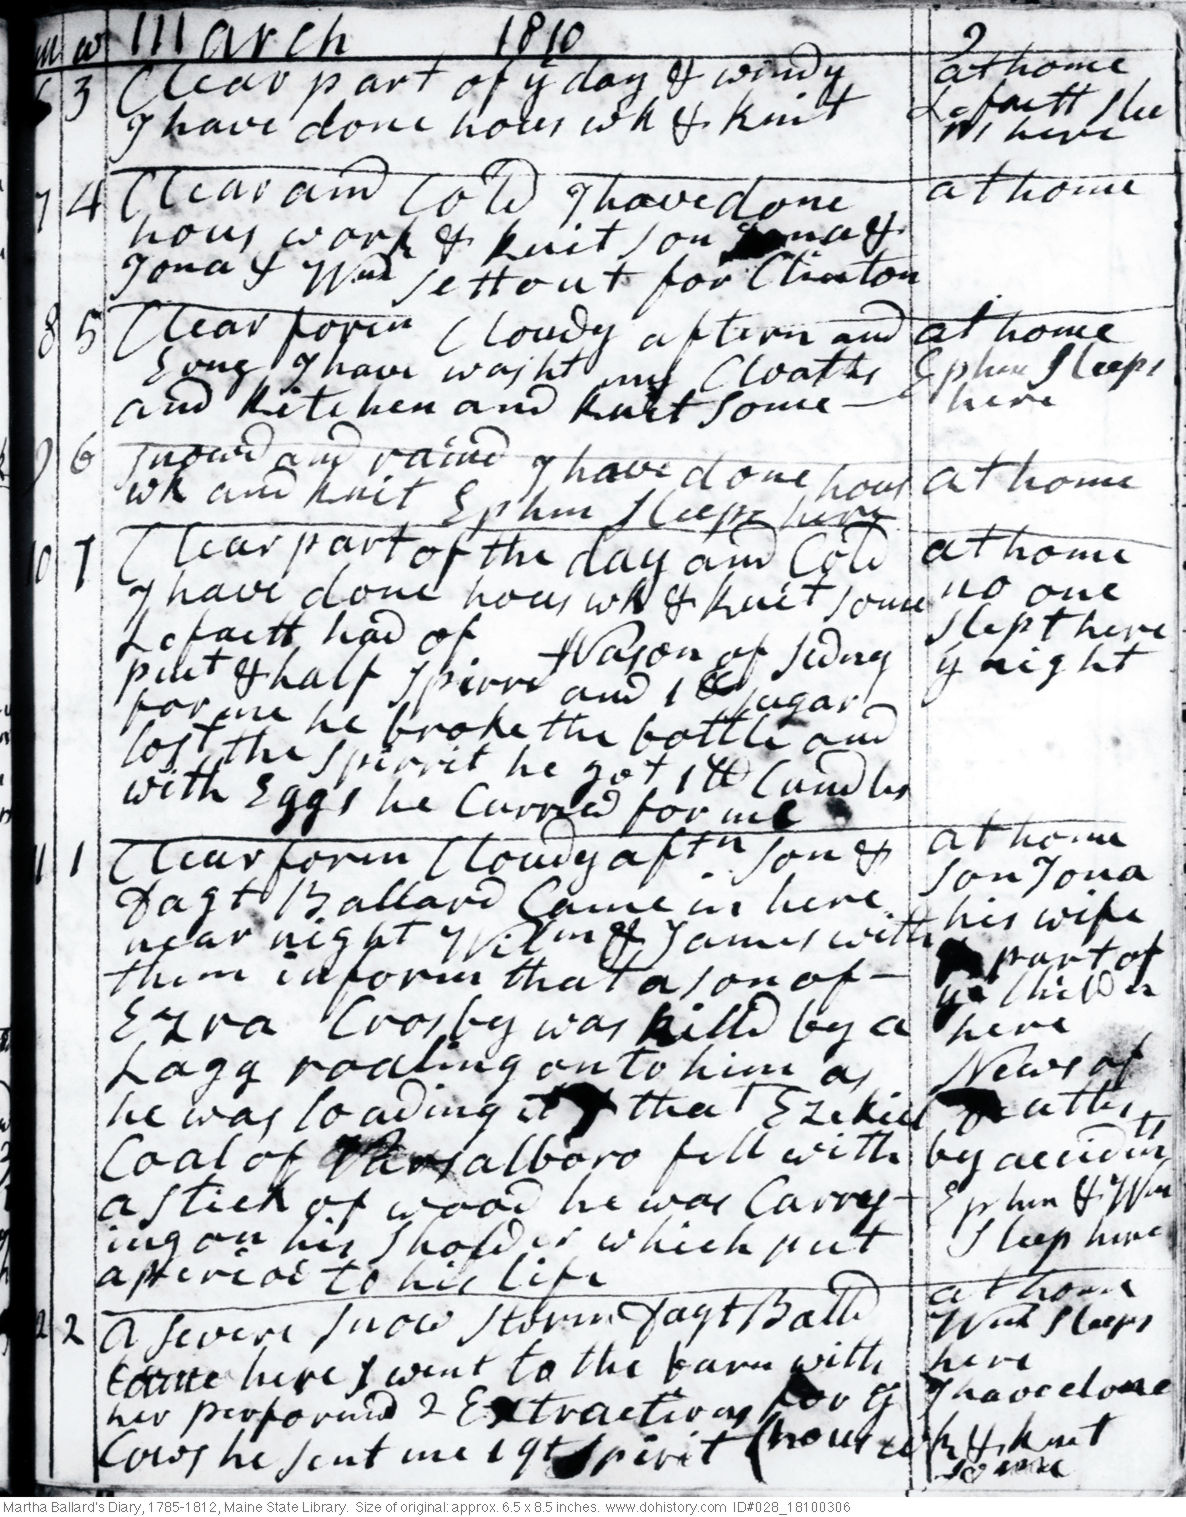 m w March 1810 2
6 3 Clear part of ÿ day & windy
I have done hous wk & knit
at home
Lefaett slee
ps here
7 4 Clear and Cold I have done
hous work & knit son
Jona & Wm sett out for Clinton
at home
8 5 Clear foren Cloudy aftern and
Evng I have washt my Cloaths
and kitchen and knit some –
at home
Ephm Sleeps
here
9 6 Snowd and raind I have done hous
wk and knit Ephm Sleeps here
at home
10 7 Clear part of the day and Cold
I have done hous wk & knit some
Lefaett had of Wason of Sidny
pint & half spirrit and 1 lb sugar
for me he broke the bottle and
lost the spirrit he got 1 lb Candles
with Eggs he Carried for me
at home
no one
slept here
ÿ night
11 1 Clear foren Cloudy aftn son &
Dagt Ballard Came in here
near night Wilm & James with
them inform that a son of –
Ezra Crosby was killd by a
Lagg roaling on to him as
he was loading it & that Ezekiel
Coal of Vassalboro fell with
a stick of wood he was Carry-
ing on his sholder which put
a perioe to his life
at home
son Jona
his wife
part of
ye Childn
here
News of
Deaths
by accidnts
Ephm & Wm
Sleep here
12 2 A severe snow storm Dagt Balld
Came here I went to the barn with
her performd 2 Extractions for ÿ
Cows he sent me 1 qt spirit (hous wk & knit
some
at home
Wm Sleeps
here
I have done
Martha Ballard's Diary, 1785-1812, Maine State Library. Size of original: approx. 6.5 x 8.5 inches. www.dohistory.com ID#028_18100306